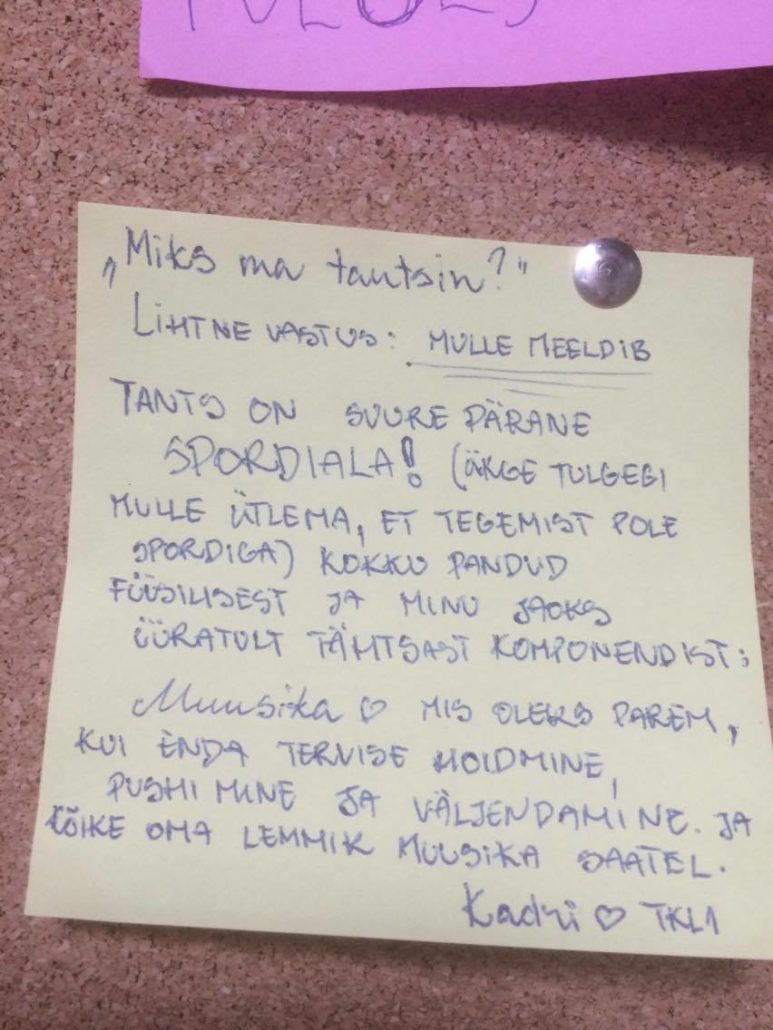 „Miks ma tantsin?"
LIHTNE VASTUS: MULLE MEELDIB
TANTS ON SUURE PÄRANE
SPORDIALA! (ÄRGE TULGEGI
MULLE ÜTLEMA, ET TEGEMIST POLE
SPORDIGA) KOKKU PANDUD
FÜÜSILISEST JA MINU JAOKS
ÜÜRATULT TÄHTSAST KOMPONENDIST:
Muusika ♡ MIS OLEKS PAREM,
KUI ENDA TERVISE HOIDMINE,
PUSHIMINE JA VÄLJENDAMINE. JA
KÕIKE OMA LEMMIK MUUSIKA SAATEL.
Kadri ♡ TKL1